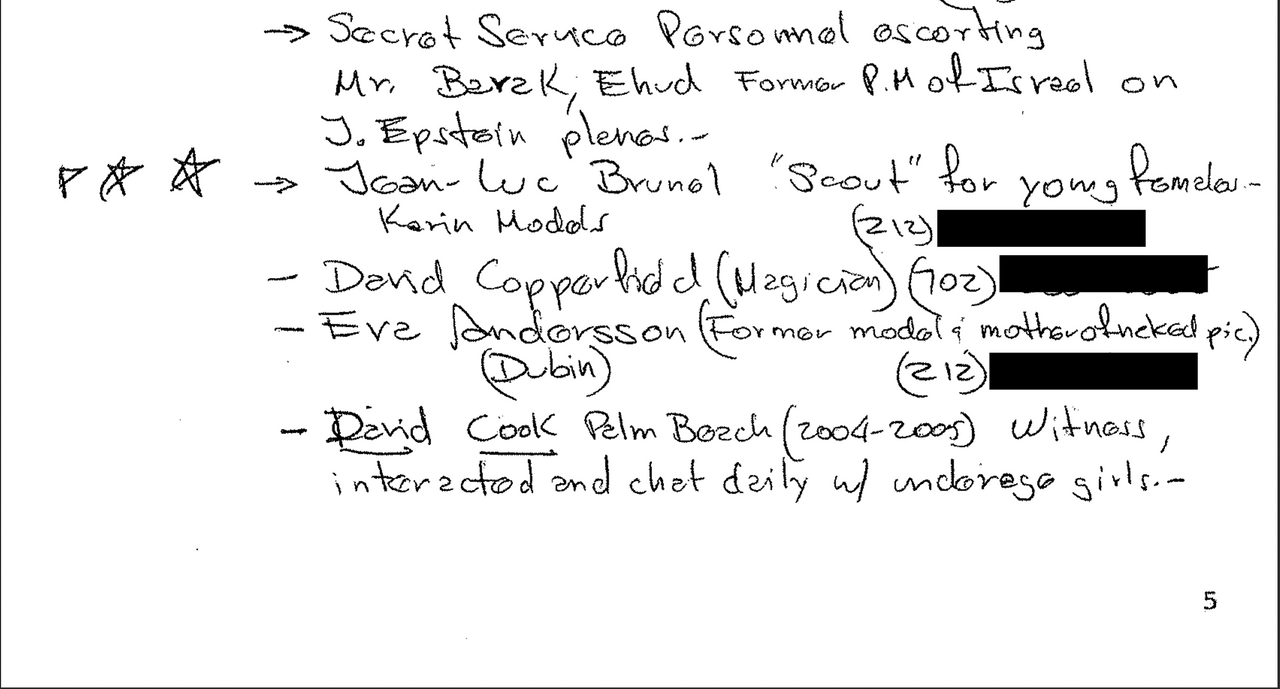 → Secret Service Personnel escorting
Mr. Barak, Ehud Former P.M of Israel on
J. Epstein planes.-
→ Jean-Luc Brunel "Scout" for young females-
Karin Models (212)
- David Copperfield (Magician) (702)
- Eva Andersson (Former model & mother of naked pic.)
(Dubin) (212)
- David Cook Palm Beach (2004-2005) Witness,
interacted and chat daily w/ underage girls.-
5